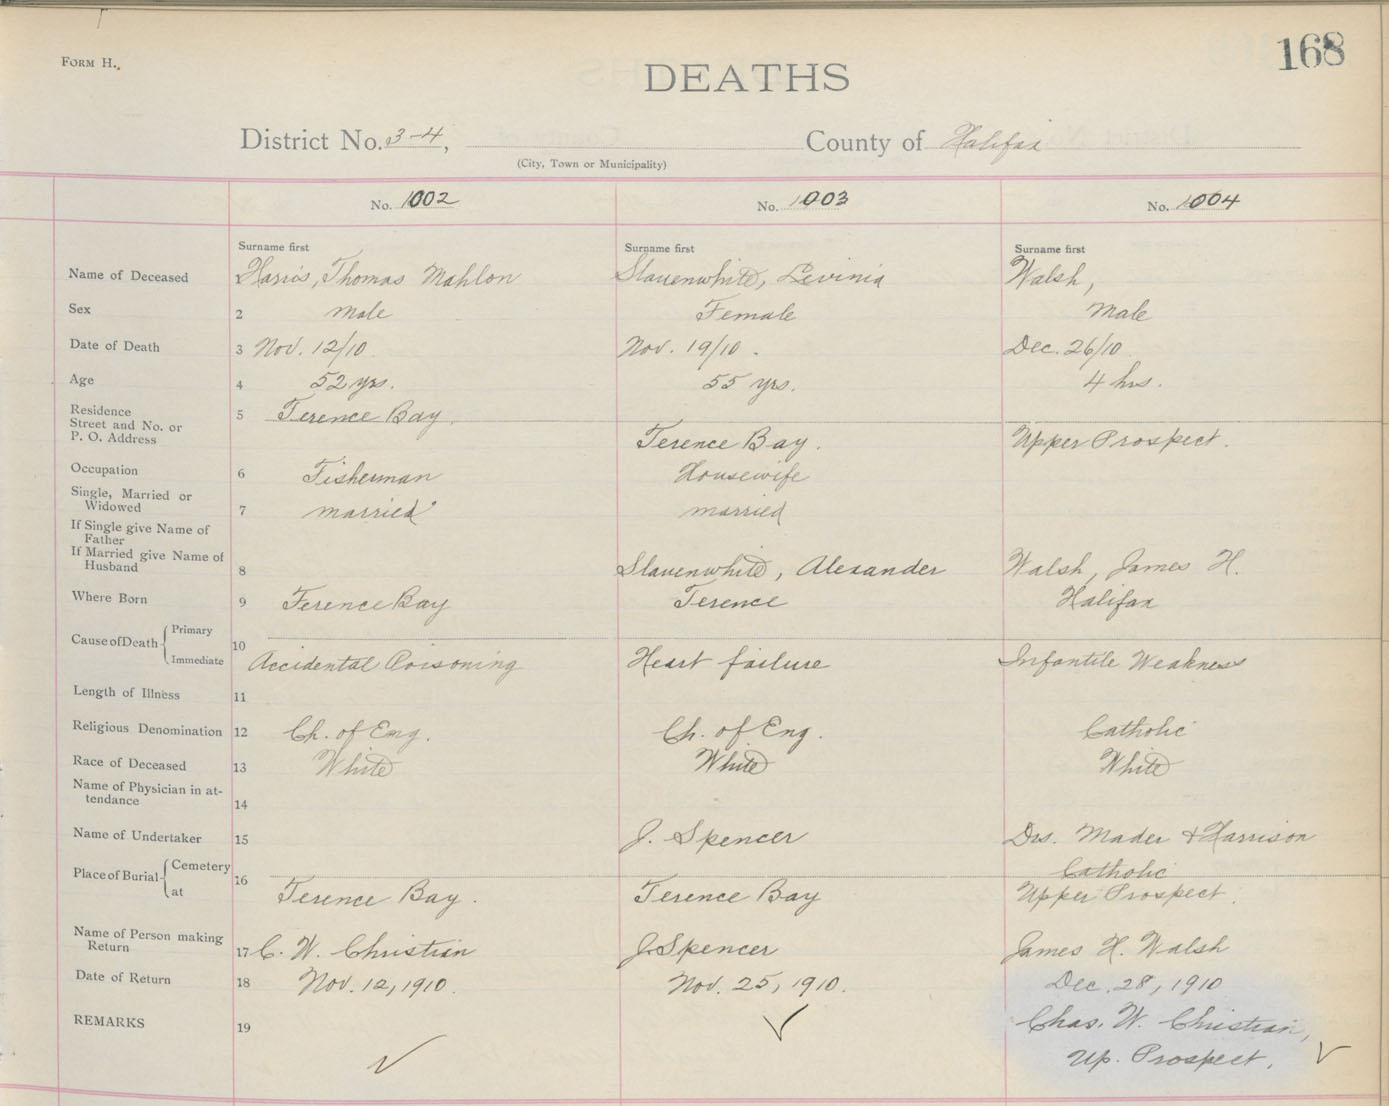 FORM H.
168
DEATHS
District No. 3-4, County of Halifax
(City, Town or Municipality)
No. 1002 No. 1003 No. 1004
Surname first Surname first Surname first
Name of Deceased Harris, Thomas Mahlon Slauenwhite, Levinia Walsh,
Sex 2 Male Female Male
Date of Death 3 Nov. 12/10 Nov. 19/10. Dec. 26/10
Age 4 52 yrs. 55 yrs. 4 hrs.
Residence 5 Terence Bay.
Street and No. or
P. O. Address Terence Bay. Upper Prospect.
Occupation 6 Fisherman Housewife
Single, Married or
Widowed 7 married married
If Single give Name of
Father
If Married give Name of
Husband 8 Slauenwhite, Alexander Walsh, James H.
Where Born 9 Terence Bay Terence Halifax
Cause of Death Primary 10
Immediate Accidental Poisoning Heart failure Infantile Weakness
Length of Illness 11
Religious Denomination 12 Ch. of Eng. Ch. of Eng. Catholic
Race of Deceased 13 White White White
Name of Physician in at-
tendance 14
Name of Undertaker 15 J. Spencer Drs. Mader & Harrison
Place of Burial Cemetery 16 Catholic
at Terence Bay. Terence Bay Upper Prospect.
Name of Person making
Return 17 C. W. Christian J. Spencer James H. Walsh
Date of Return 18 Nov. 12, 1910. Nov. 25, 1910. Dec. 28, 1910
REMARKS 19 Chas. W. Christian,
Up. Prospect.